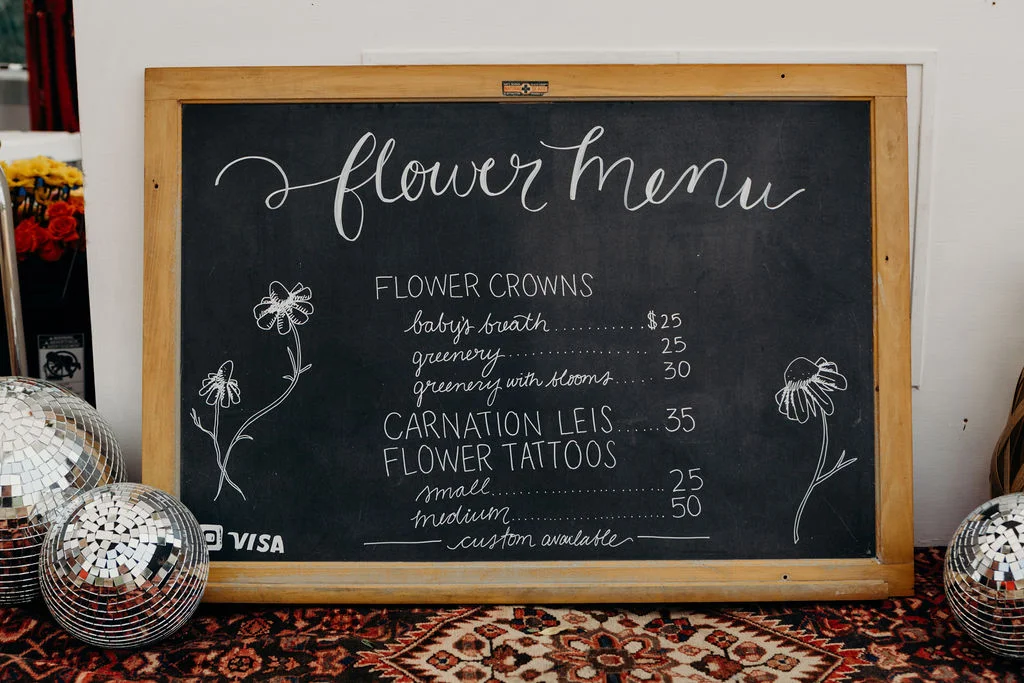 flower menu
FLOWER CROWNS
baby's breath...........$25
greenery.................... 25
greenery with blooms..... 30
CARNATION LEIS......35
FLOWER TATTOOS
small........................ 25
medium..................... 50
custom available
VISA